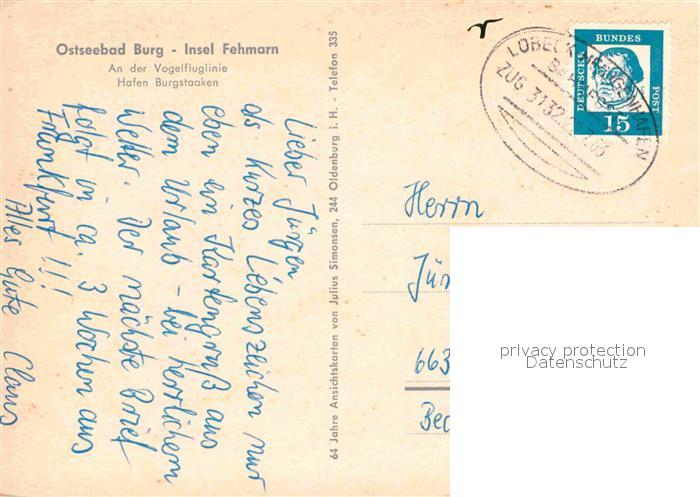 Ostseebad Burg - Insel Fehmarn
An der Vogelfluglinie
Hafen Burgstaaken
Lieber Jürgen
als kurzes Lebenszeichen nur
eben ein Kartengruß aus
dem Urlaub - bei herrlichem
Wetter. Der nächste Brief
folgt in ca. 3 Wochen aus
Frankfurt!!!
Alles Gute Claus
64 Jahre Ansichtskarten von Julius Simonsen, 244 Oldenburg i. H. - Telefon 335
LÜBECK
ZUG 3132
DEUTSCHE
BUNDES
POST
15
Herrn
Jür
663
privacy protection
Datenschutz